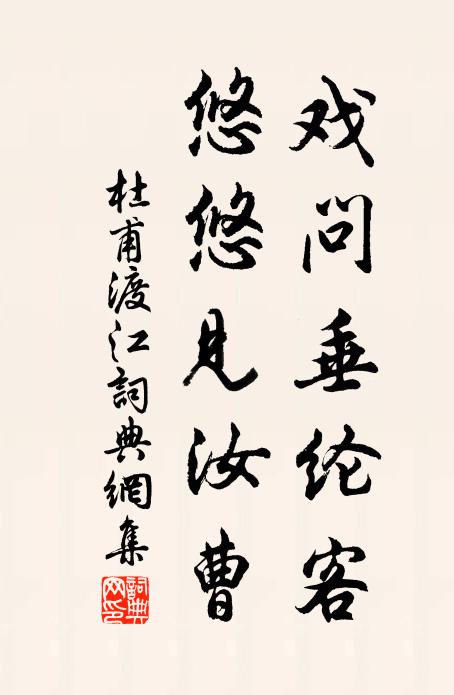 戏问垂纶客
悠悠见汝曹
杜甫渡江詞典網集
詞典网印